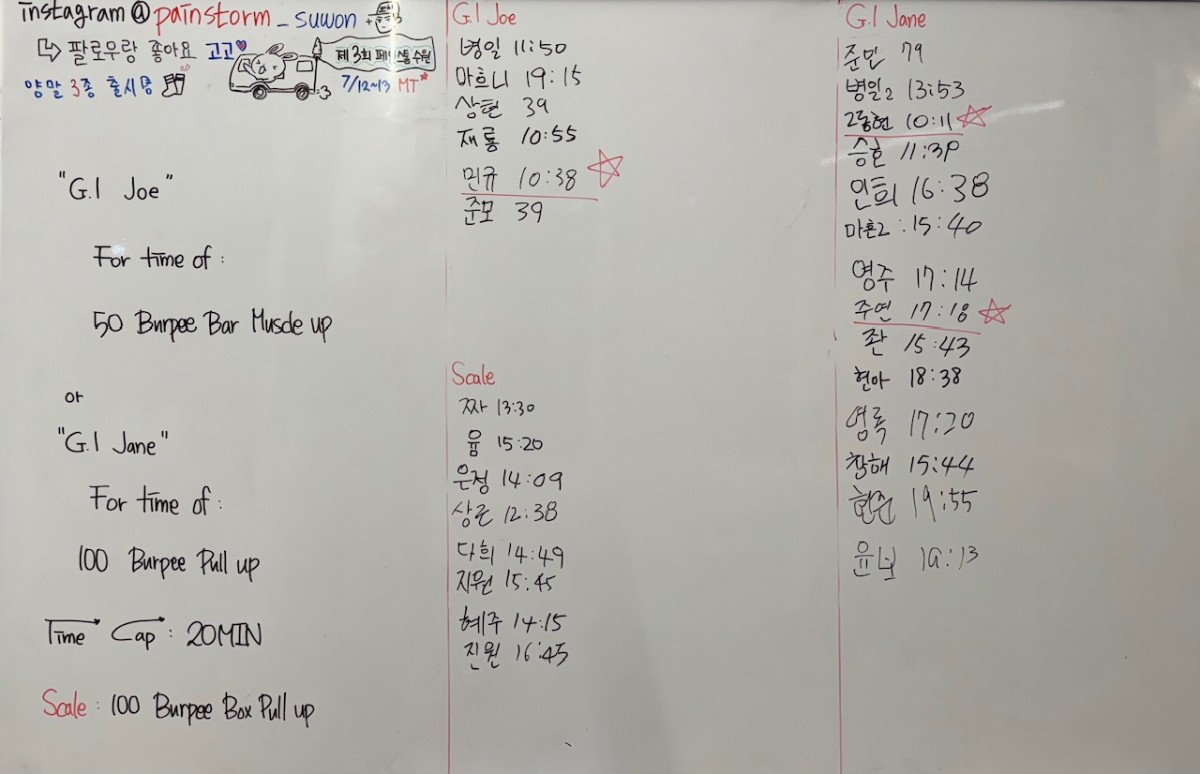 instagram @ painstorm _ suwon
↳ 팔로우랑 좋아요 고고♥
양말 3종 출시중
제3회 페인스톰 수원
7/12~13 MT*
"G.I Joe"
For time of :
50 Burpee Bar Muscle up
or
"G.I Jane"
For time of :
100 Burpee Pull up
Time Cap : 20MIN
Scale : 100 Burpee Box Pull up
G.I Joe
병일 11:50
마흐니 19:15
상현 39
재룡 10:55
민규 10:38 ☆
준모 39
Scale
짜 13:30
윰 15:20
은정 14:09
상은 12:38
다희 14:49
지원 15:45
혜주 14:15
진원 16:45
G.I Jane
준밀 79
병일2 13:53
고동현 10:11 ☆
승호 11:39
인희 16:38
마흔2 : 15:40
영주 17:14
주연 17:18 ☆
좐 15:43
현아 18:38
영록 17:20
창해 15:44
현준 19:55
윤보 19:13